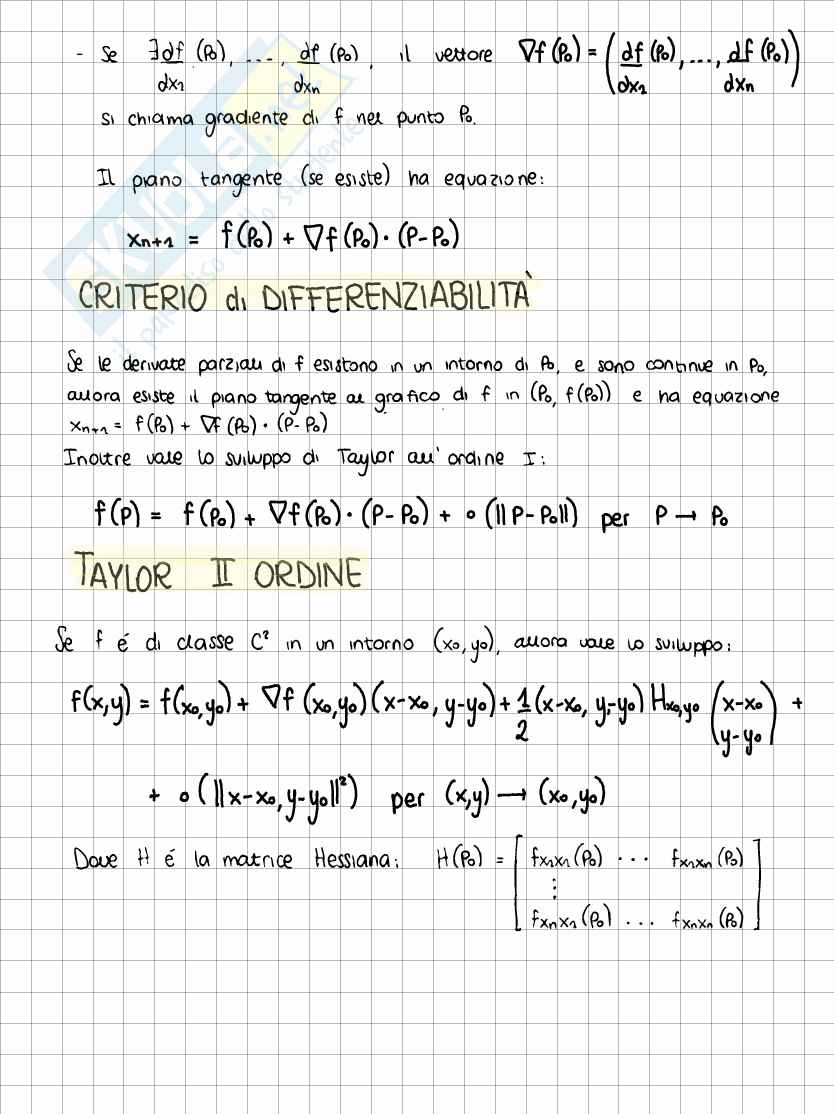 - Se ∃ df/dx₁ (P₀), ..., df/dxₙ (P₀), il vettore ∇f(P₀) = (df/dx₁ (P₀), ..., df/dxₙ (P₀))
si chiama gradiente di f nel punto P₀.
Il piano tangente (se esiste) ha equazione:
xₙ₊₁ = f(P₀) + ∇f(P₀)·(P-P₀)
CRITERIO di DIFFERENZIABILITÀ
Se le derivate parziali di f esistono in un intorno di P₀, e sono continue in P₀,
allora esiste il piano tangente al grafico di f in (P₀, f(P₀)) e ha equazione
xₙ₊₁ = f(P₀) + ∇f(P₀)·(P-P₀)
Inoltre vale lo sviluppo di Taylor all'ordine I:
f(P) = f(P₀) + ∇f(P₀)·(P-P₀) + o(||P-P₀||) per P → P₀
TAYLOR II ORDINE
Se f é di classe C² in un intorno (x₀,y₀), allora vale lo sviluppo:
f(x,y) = f(x₀,y₀) + ∇f(x₀,y₀)(x-x₀, y-y₀) + 1/2 (x-x₀, y-y₀) Hx₀,y₀ (x-x₀ y-y₀) +
+ o(||x-x₀, y-y₀||²) per (x,y) → (x₀,y₀)
Dove H é la matrice Hessiana: H(P₀) = [fx₁x₁(P₀) ... fx₁xₙ(P₀)
⋮
fxₙx₁(P₀) ... fxₙxₙ(P₀)]
SKUOLA.net
il paradiso dello studente